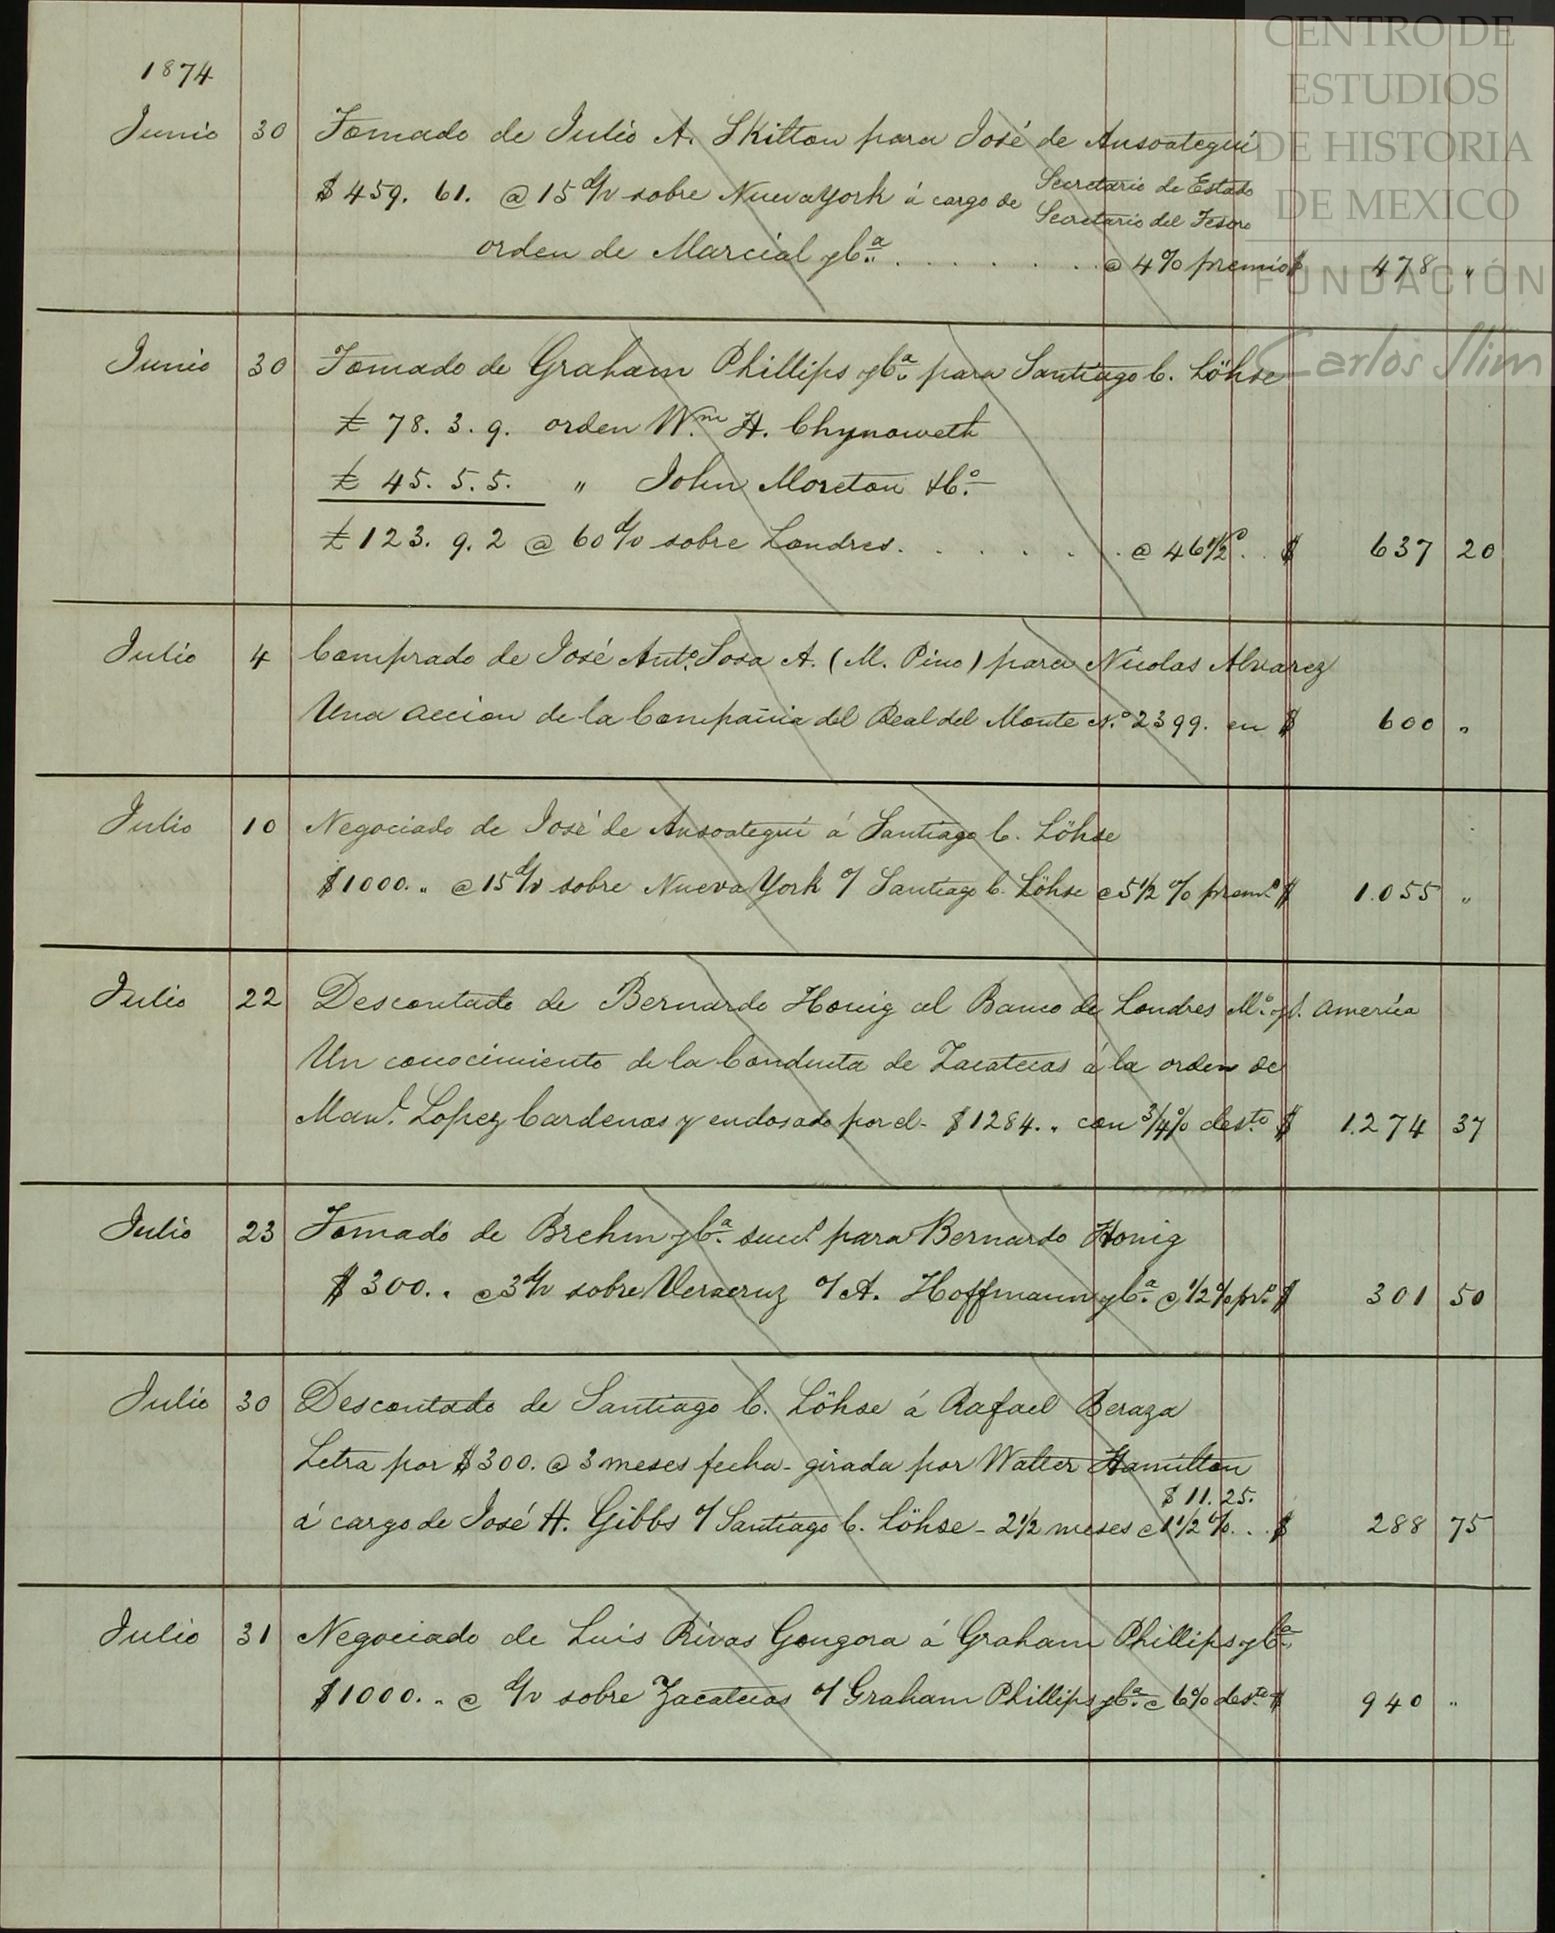 CENTRO DE
ESTUDIOS
DE HISTORIA
DE MEXICO
FUNDACIÓN
Carlos Slim
1874
Junio 30 Tomado de Julio A. Skilton para José de Ansoategui
$459. 61. @ 15 d/v sobre Nueva York á cargo de Secretario de Estado
Secretario del Tesoro
orden de Marcial y Cª. . . . . . . . @ 4% premio $ 478 "
Junio 30 Tomado de Graham Phillips y Cª. para Santiago C. Löhse
£ 78. 3. 9. orden Wm. H. Chynoweth
£ 45. 5. 5. " John Moreton & Cº.
£ 123. 9. 2 @ 60 d/v sobre Londres. . . . . . . @ 46 1/2 d. . $ 637 20
Julio 4 Comprado de José Antº. Sosa A. (M. Pino) para Nicolas Alvarez
Una accion de la Compañia del Real del Monte Nº. 2399. en $ 600 "
Julio 10 Negociado de José de Ansoategui á Santiago C. Löhse
$1000. " @ 15 d/v sobre Nueva York o/ Santiago C. Löhse @ 5 1/2 % premº. $ 1.055 "
Julio 22 Descontado de Bernardo Honig al Banco de Londres Mº. y S. America
Un conocimiento de la Conducta de Zacatecas á la orden de
Manl. Lopez Cardenas y endosado por el - $1284. " con 3/4 % desto. $ 1.274 37
Julio 23 Tomado de Brehm y Cª. sucs. para Bernardo Honig
$300. " @ 3 d/v sobre Veracruz o/ A. Hoffmann y Cª. @ 1/2 % prº. $ 301 50
Julio 30 Descontado de Santiago C. Löhse á Rafael Beraza
Letra por $300. @ 3 meses fecha - girada por Walter Hamilton
$ 11. 25.
á cargo de José H. Gibbs o/ Santiago C. Löhse - 2 1/2 meses @ 1 1/2 %. . . $ 288 75
Julio 31 Negociado de Luis Rivas Gongora á Graham Phillips y Cª.
$1000. " @ d/v sobre Zacatecas o/ Graham Phillips y Cª. @ 6% desto. $ 940 "